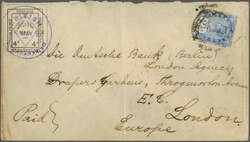 Die Deutsche Bank (Berlin)
London Agency
Drapers Gardens, Throgmorton Avenue
E. C.
London
Paid
Europe